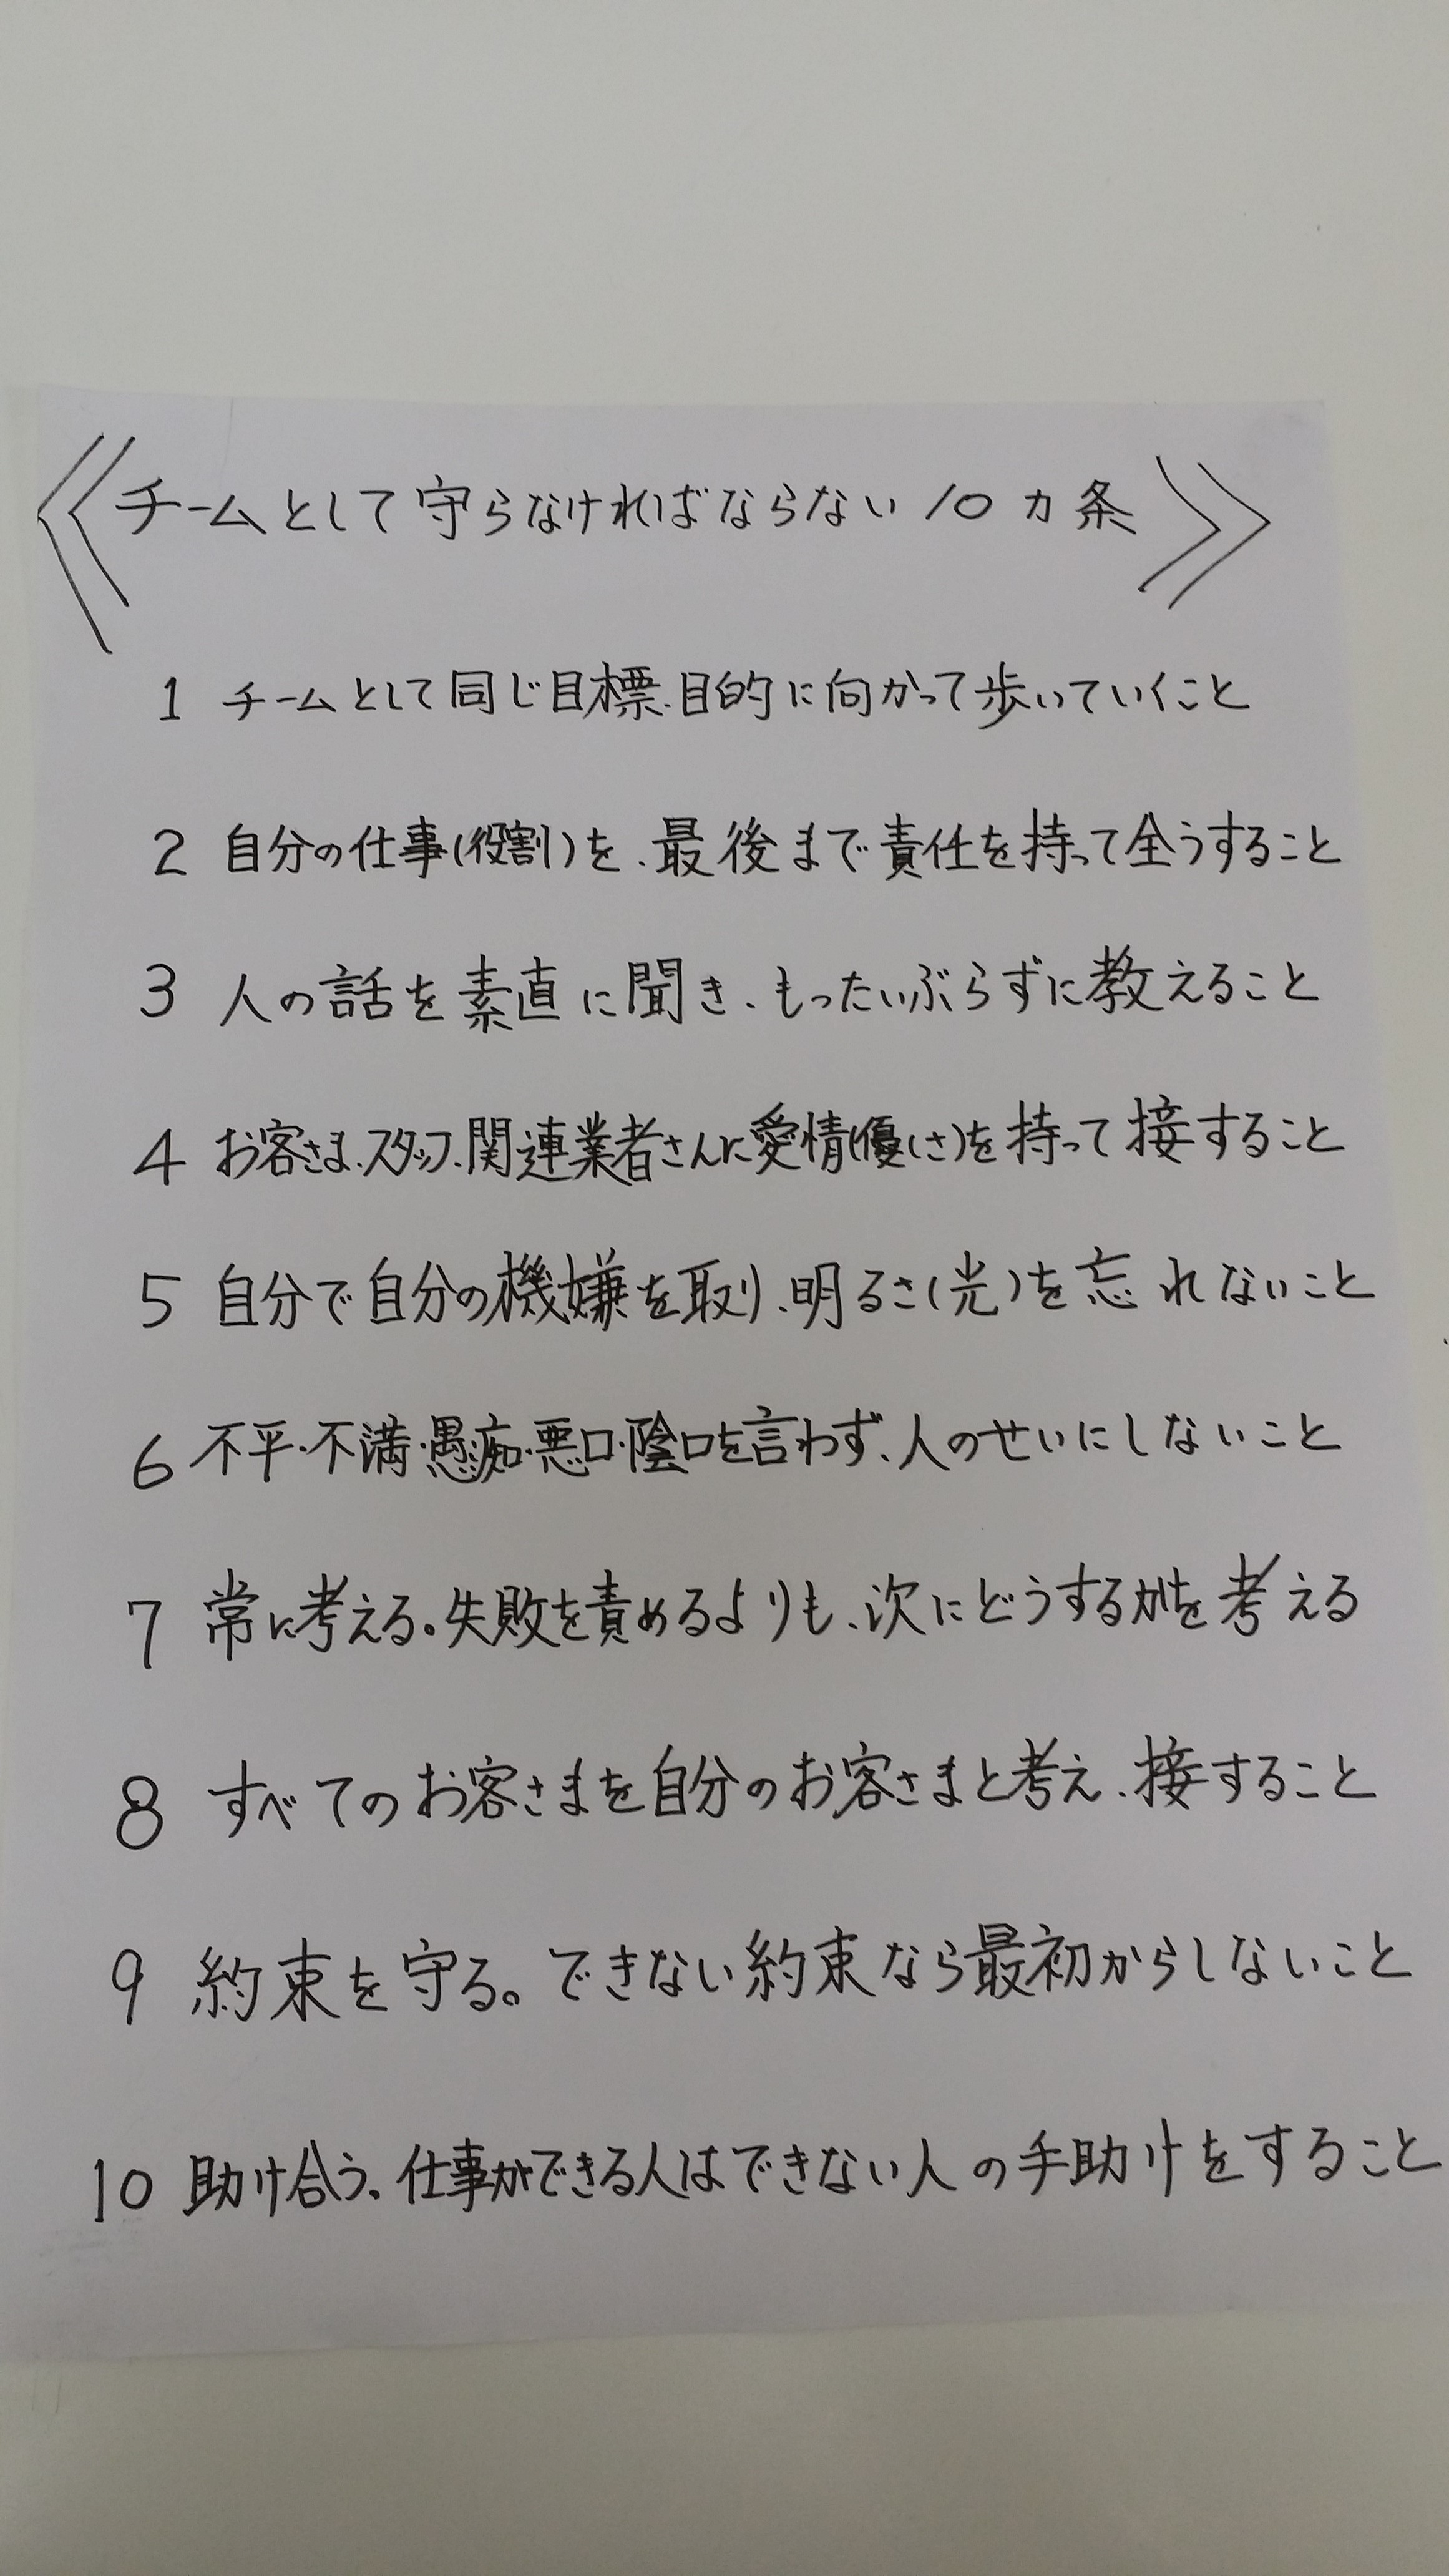 《チームとして守らなければならない10カ条》
1 チームとして同じ目標、目的に向かって歩いていくこと
2 自分の仕事(役割)を、最後まで責任を持って全うすること
3 人の話を素直に聞き、もったいぶらずに教えること
4 お客さま、スタッフ、関連業者さんに愛情(優しさ)を持って接すること
5 自分で自分の機嫌を取り、明るさ(光)を忘れないこと
6 不平・不満・愚痴・悪口・陰口を言わず、人のせいにしないこと
7 常に考える。失敗を責めるよりも、次にどうするかを考える
8 すべてのお客さまを自分のお客さまと考え、接すること
9 約束を守る。できない約束なら最初からしないこと
10 助け合う。仕事ができる人はできない人の手助けをすること